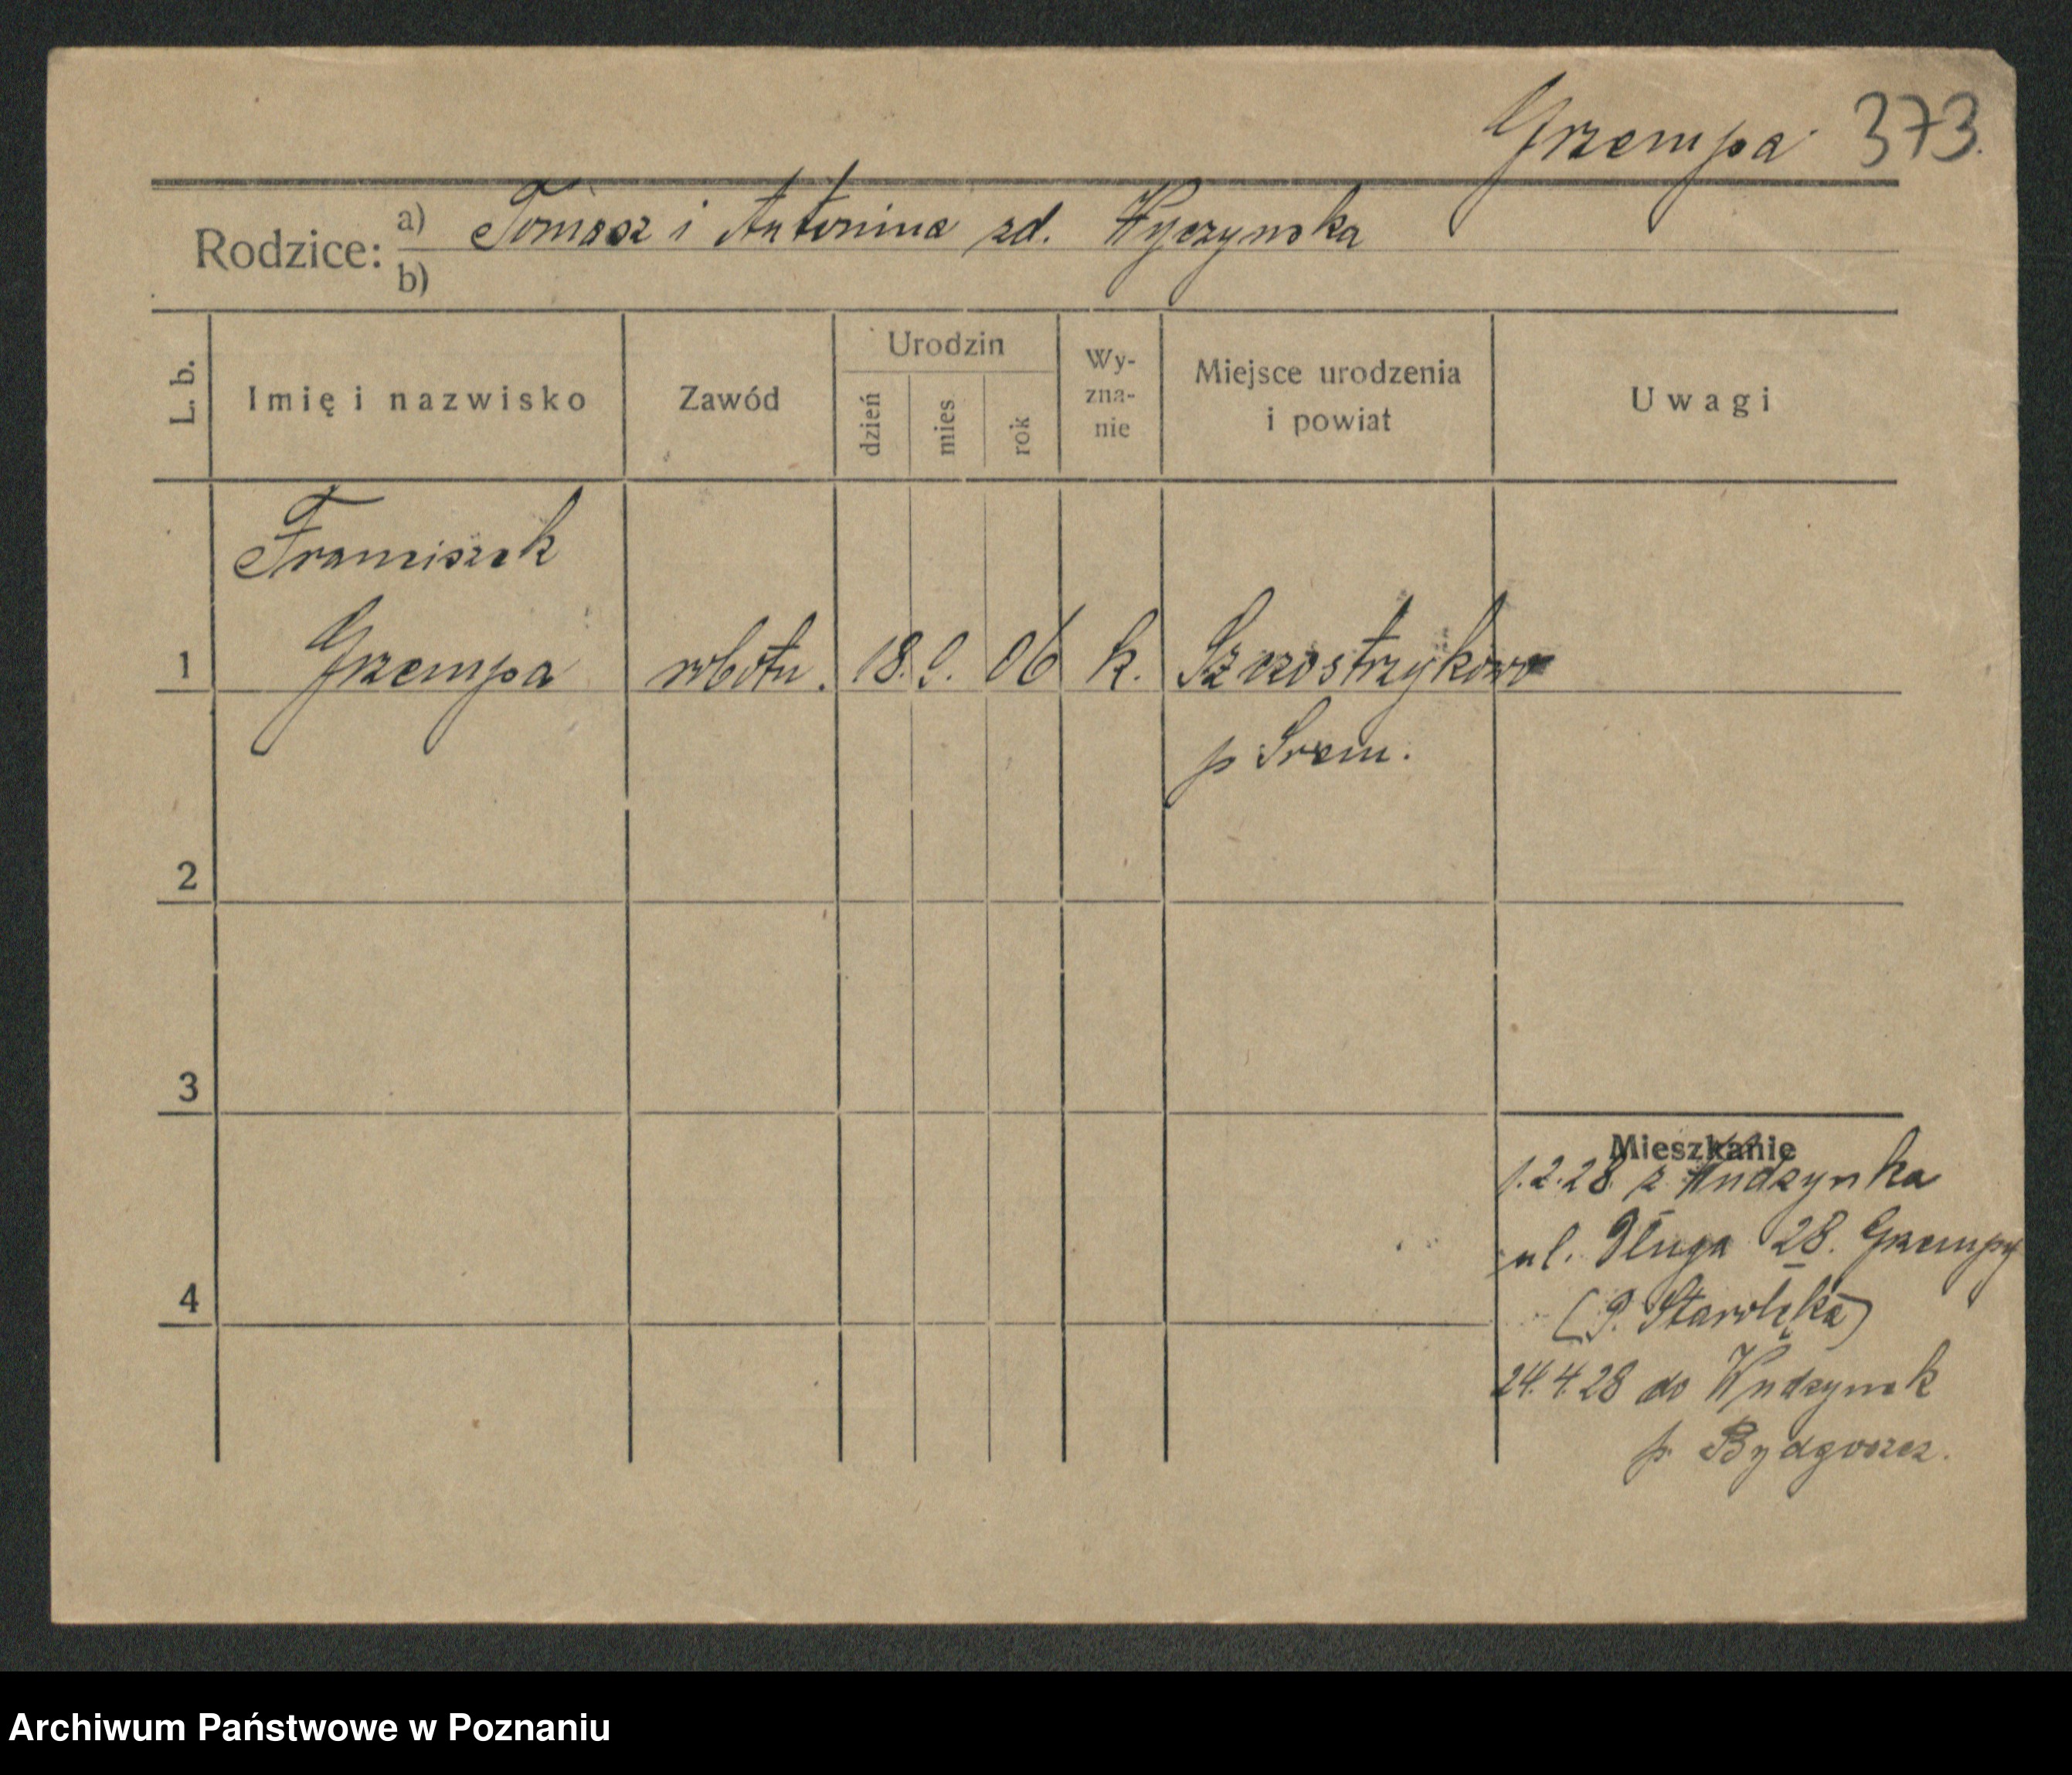 Grzempa 373.
Rodzice: a) Tomasz i Antonina zd. Wyczynska
b)
L. b. Imię i nazwisko Zawód Urodzin dzień mies. rok Wyzna-nie Miejsce urodzenia i powiat Uwagi
Franciszek
1 Grzempa robotn. 18. 9. 06 k. Szczostrzykowo
p Srem.
2
3
Mieszkanie
1.2.28 z Wudzynka
ul. Długa 28. Grzempy
4 (P. Starołęka)
24.4.28 do Wudzynek
p. Bydgoszcz.
Archiwum Państwowe w Poznaniu